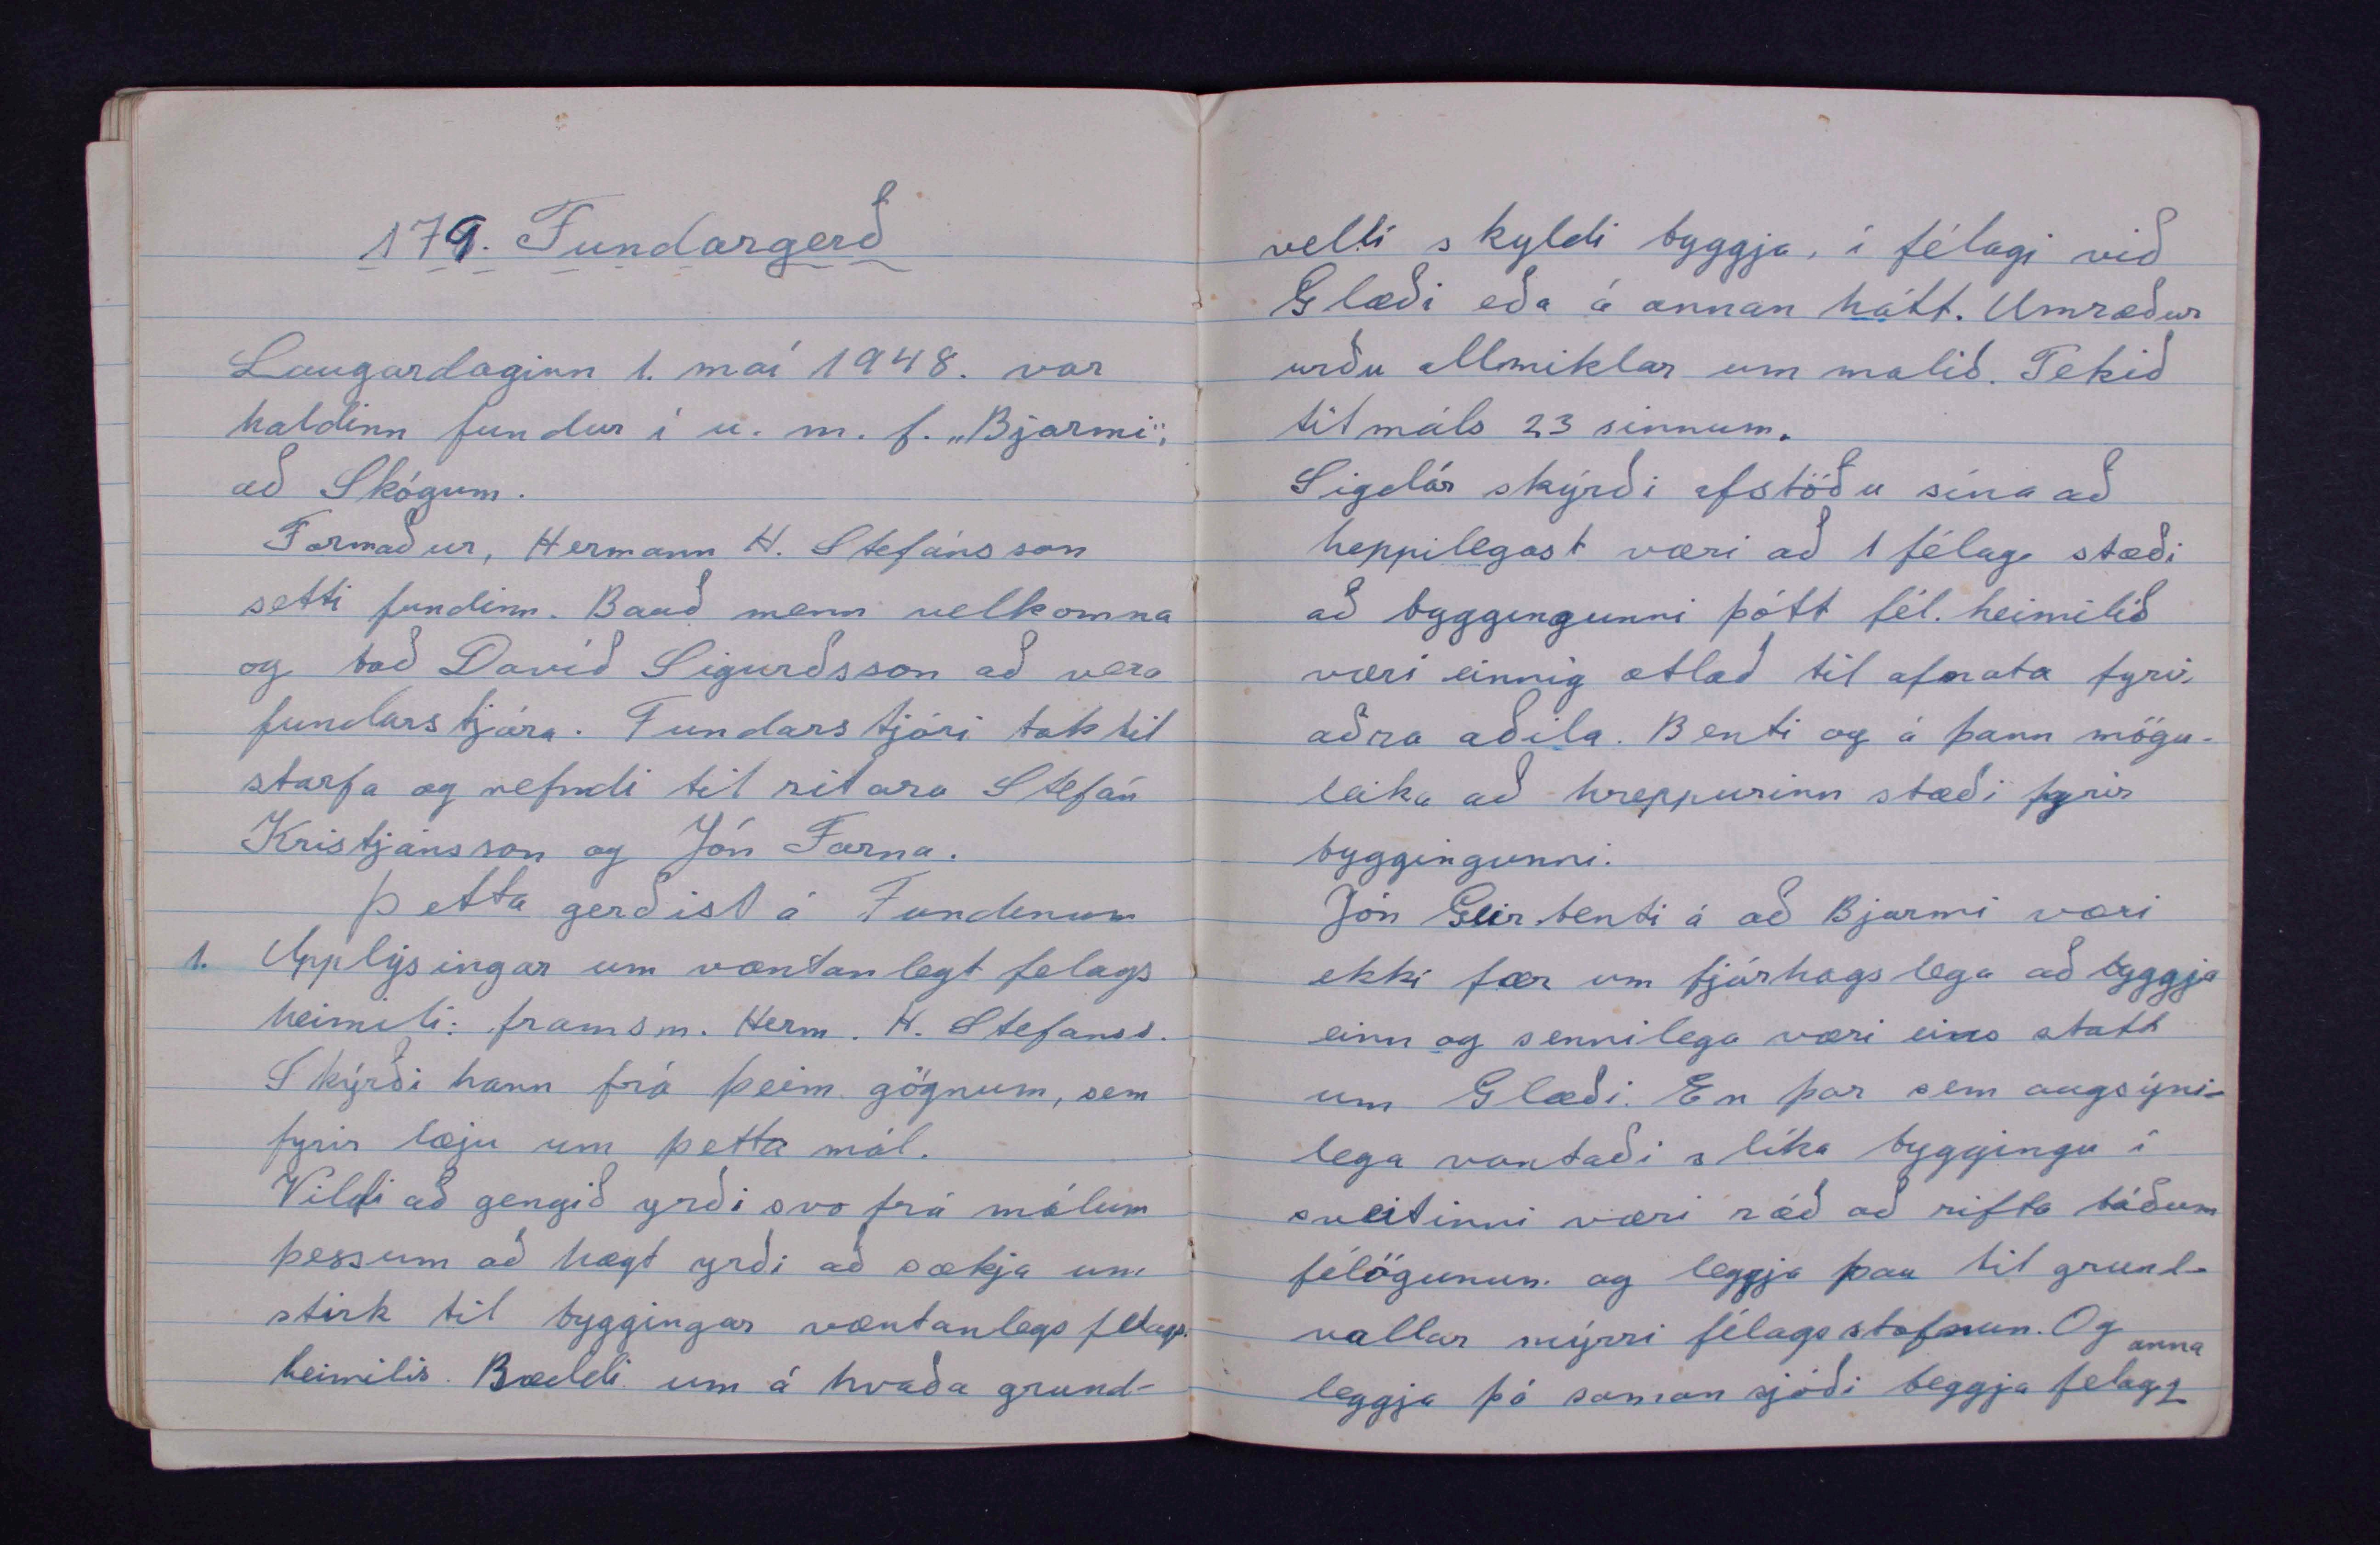 179. Fundargerð
Laugardaginn 1. maí 1948. var
haldinn fundur í u. m. f. „Bjarmi",
að Skógum.
Formaður, Hermann H. Stefánsson
setti fundinn. Bauð menn velkomna
og bað Davíð Sigurðsson að vera
fundarstjóra. Fundarstjóri tók til
starfa og nefndi til ritara Stefán
Kristjánsson og Jón Forna.
Þetta gerðist á Fundinum
1. Upplýsingar um væntanlegt felags
heimili: framsm. Herm. H. Stefanss.
Skýrði hann frá þeim gögnum, sem
fyrir læju um þetta mál.
Vildi að gengið yrði svo frá málum
þessum að hægt yrði að sækja um
stirk til byggingar væntanlegs felags.
heimilis. Bæddi um á hvaða grund-
velli skyldi byggja, í félagi við
Glæði eða á annan hátt. Umræður
urðu allmiklar um malið. Tekið
til máls 23 sinnum.
Sigdór skýrði afstöðu sína að
heppilegast væri að 1 félag stæði
að byggingunni þótt fél. heimilið
væri einnig ætlað til afnota fyrir
aðra aðila. Benti og á þann mögu-
leika að hreppurinn stæði fyrir
byggingunni.
Jón Geir benti á að Bjarmi væri
ekki fær um fjárhagslega að byggja
einn og sennilega væri eins statt
um Glæði. En þar sem augsýni-
lega vantaði slíka byggingu í
sveitinni væri ráð að rifta báðum
félögunum og leggja þau til grund-
vallar nýrri félagsstofnun. Og
leggja þá saman sjóði beggja felaganna